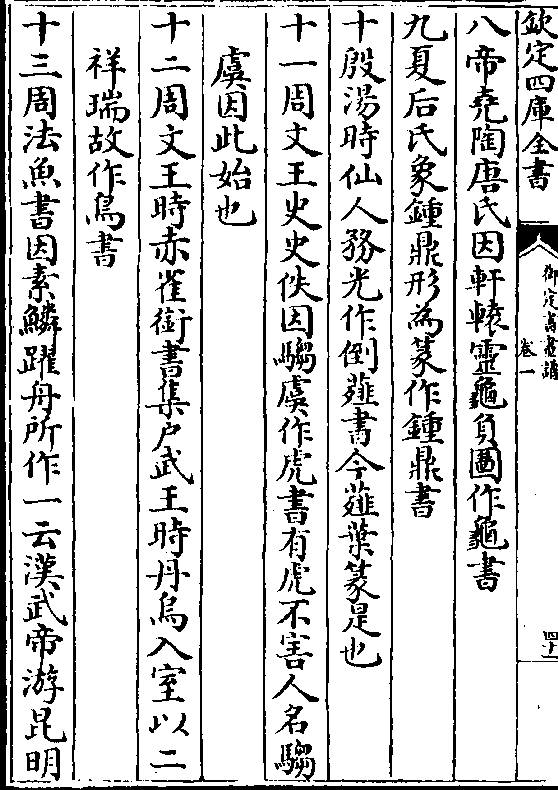 欽定四庫全書
御定書畫譜
卷一
四十
八帝堯陶唐氏因軒轅靈龜負圖作龜書
九夏后氏象鍾鼎形為篆作鍾鼎書
十殷湯時仙人務光作倒薤書今薤葉篆是也
十一周文王史史佚因騶虞作虎書有虎不害人名騶
虞因此始也
十二周文王時赤雀銜書集户武王時丹烏入室以二
祥瑞故作鳥書
十三周法魚書因素鱗躍舟所作一云漢武帝游昆明